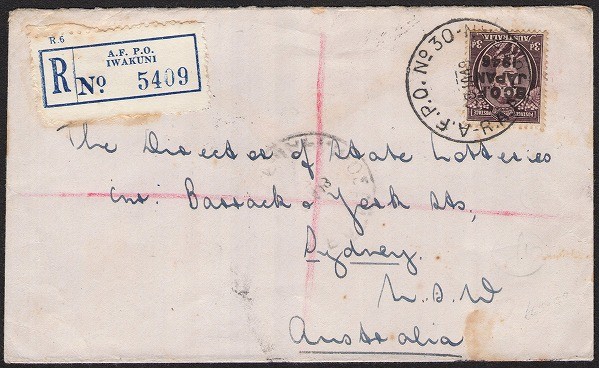 R.6
A.F.P.O.
IWAKUNI
R No. 5409
A.F.P.O. No 30
AUSTRALIA
B.C.O.F.
JAPAN
1946
The Director of State Lotteries
Cnr. Barrack & York Sts,
Sydney.
N.S.W
Australia